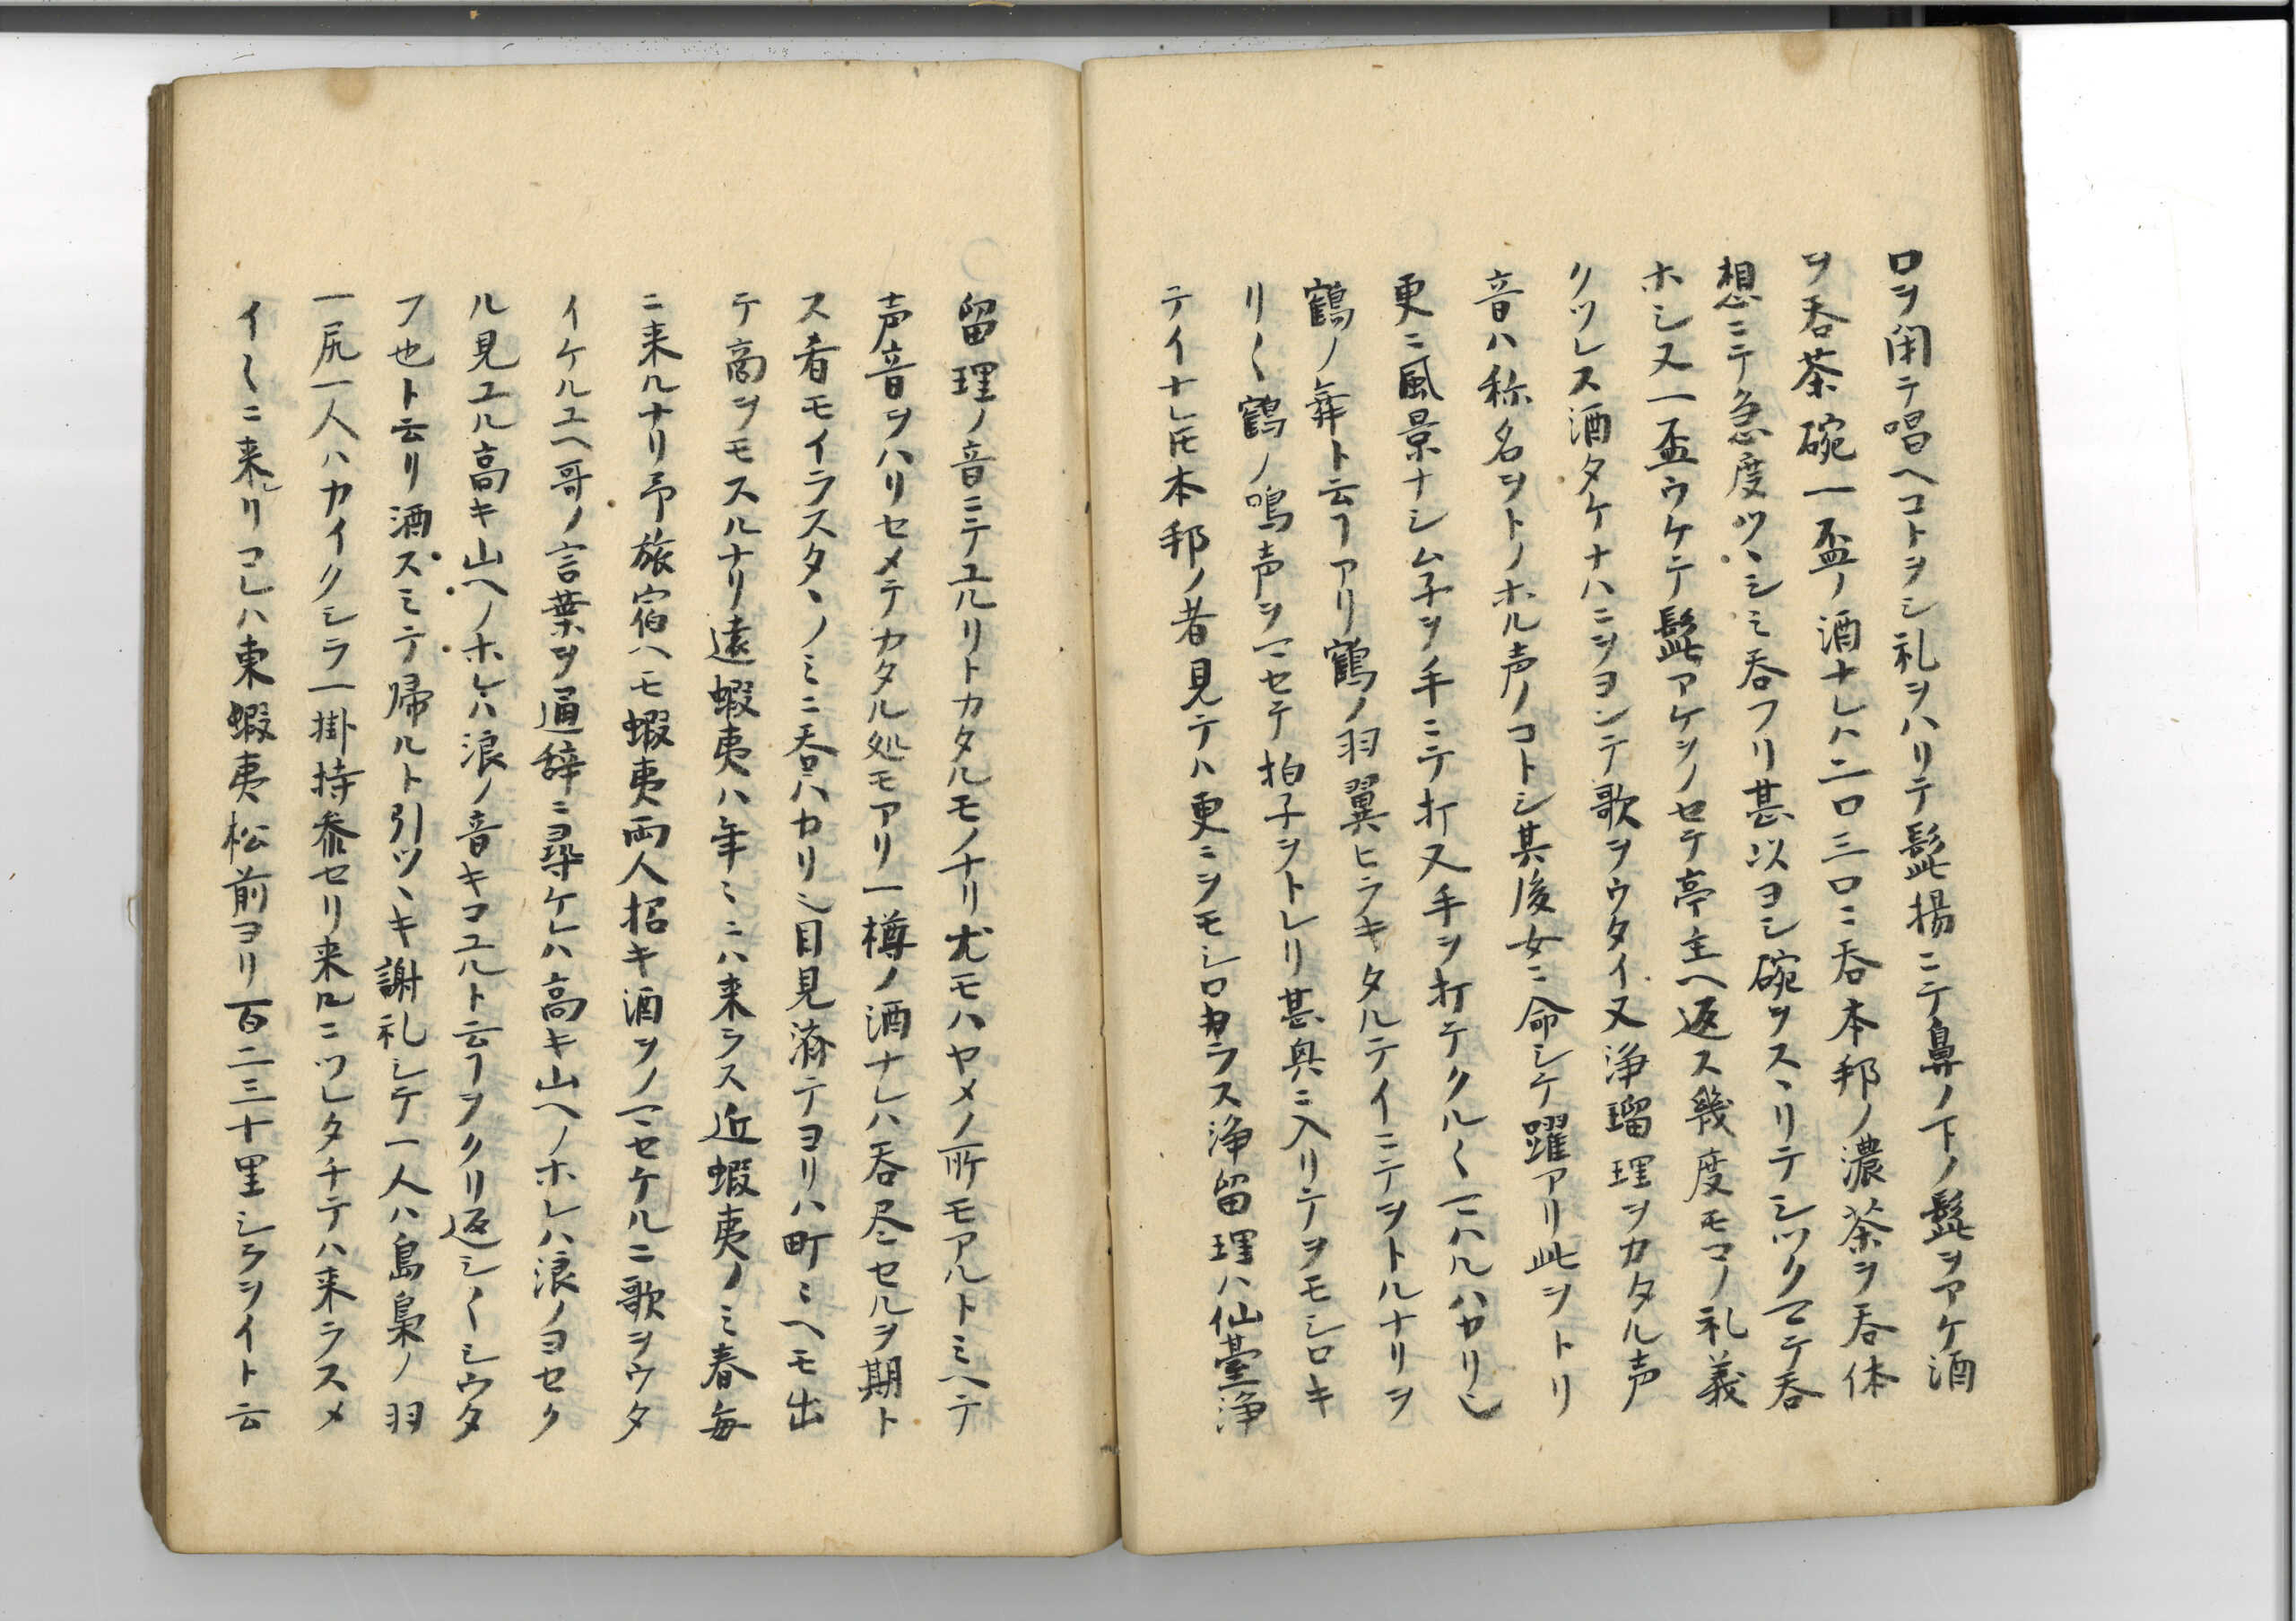 口ヲ閉テ唱ヘコトヲシ礼ヲハリテ髭揚ニテ鼻ノ下ノ髭ヲアケ酒
ヲ呑茶碗一盃ノ酒ナレハ二口三口ニ呑本邦ノ濃茶ヲ呑体
想ニテ急度ツヽシミ呑フリ甚以ヨシ碗ヲスヽリテシツクマテ呑
ホシ又一盃ウケテ髭アケヲノセテ亭主ヘ返ス幾度モコノ礼義
クツレス酒タケナハニヲヨンテ歌ヲウタイ又浄瑠理ヲカタル声
音ハ称名ヲトノホル声ノコトシ其後女ニ命シケ躍アリ此ヲトリ
更ニ風景ナシム子ヲ手ニテ打又手ヲ打テクル〱マハルハカリ也
鶴ノ舞ト云フアリ鶴ノ羽翼ヒラキタルテイニテヲトルナリヲ
リ〱鶴ノ鳴声ヲマセテ拍子ヲトレリ甚興ニ入リテヲモシロキ
テイナレ𪜈本邦ノ者見テハ更ニヲモシロカラス浄留理ハ仙臺浄
留理ノ音ニテユルリトカタルモノナリ尤モハヤメノ所モアルトミヘテ
声音ヲハリセメテカタル処モアリ一樽ノ酒ナレハ呑尽セルヲ期ト
ス肴モイラスタヽノミニ呑ハカリ也目見済テヨリハ町ミヘモ出
テ商ヲモスルナリ遠蝦夷ハ年ミニハ来ラス近蝦夷ノミ春毎
ニ来ルナリ予旅宿ヘモ蝦夷両人招キ酒ヲノマセケルニ歌ヲウタ
イケルユヘ哥ノ言葉ヲ通辞ニ尋ケレハ高キ山ヘノホレハ浪ノヨセク
ル見ユル高キ山ヘノホレハ浪ノ音キコユルト云フヲクリ返シ〱シウタ
フ也ト云リ酒スミテ帰ルト引ツヽキ謝礼シテ一人ハ島梟ノ羽
一尻一人ハカイクシラ一掛持参セリ来ルニツレタチテハ来ラスメ
イ〱ニ来レリコレハ東蝦夷松前ヨリ百二三十里シラヲイト云